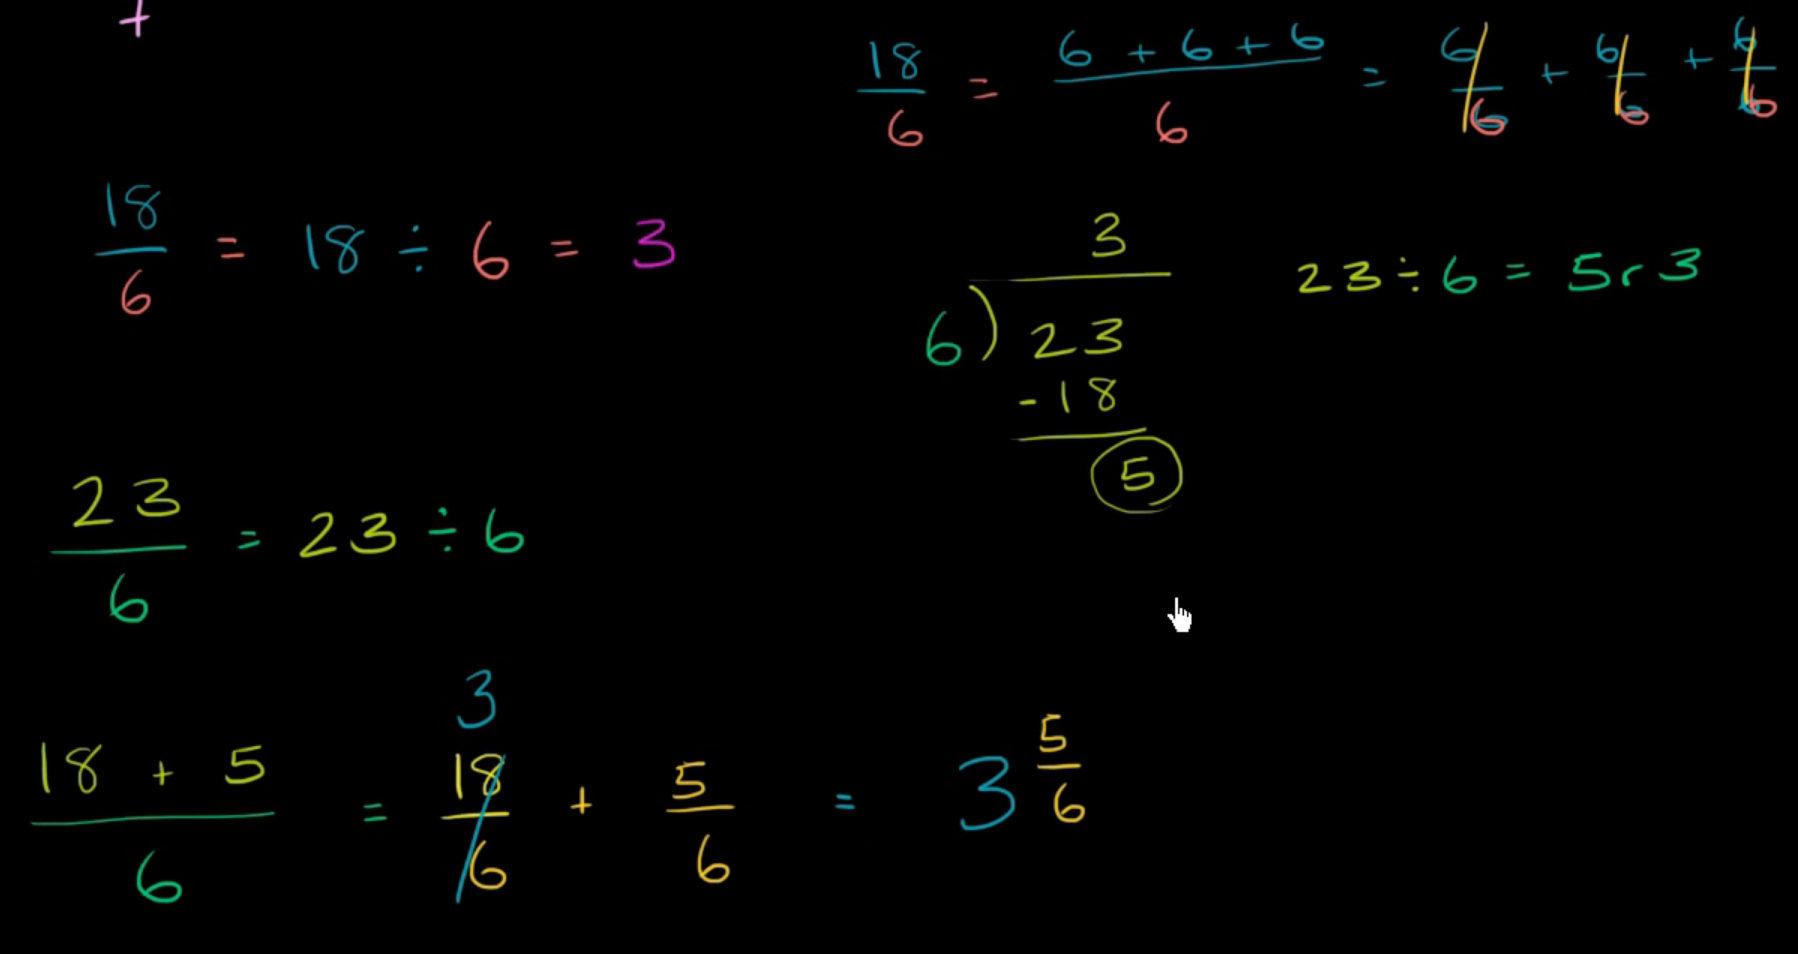 +
18/6 = (6 + 6 + 6)/6 = 6/6 + 6/6 + 6/6
18/6 = 18 ÷ 6 = 3
3
6)23
-18
5
23 ÷ 6 = 5 r 3
23/6 = 23 ÷ 6
3
(18 + 5)/6 = 18/6 + 5/6 = 3 5/6